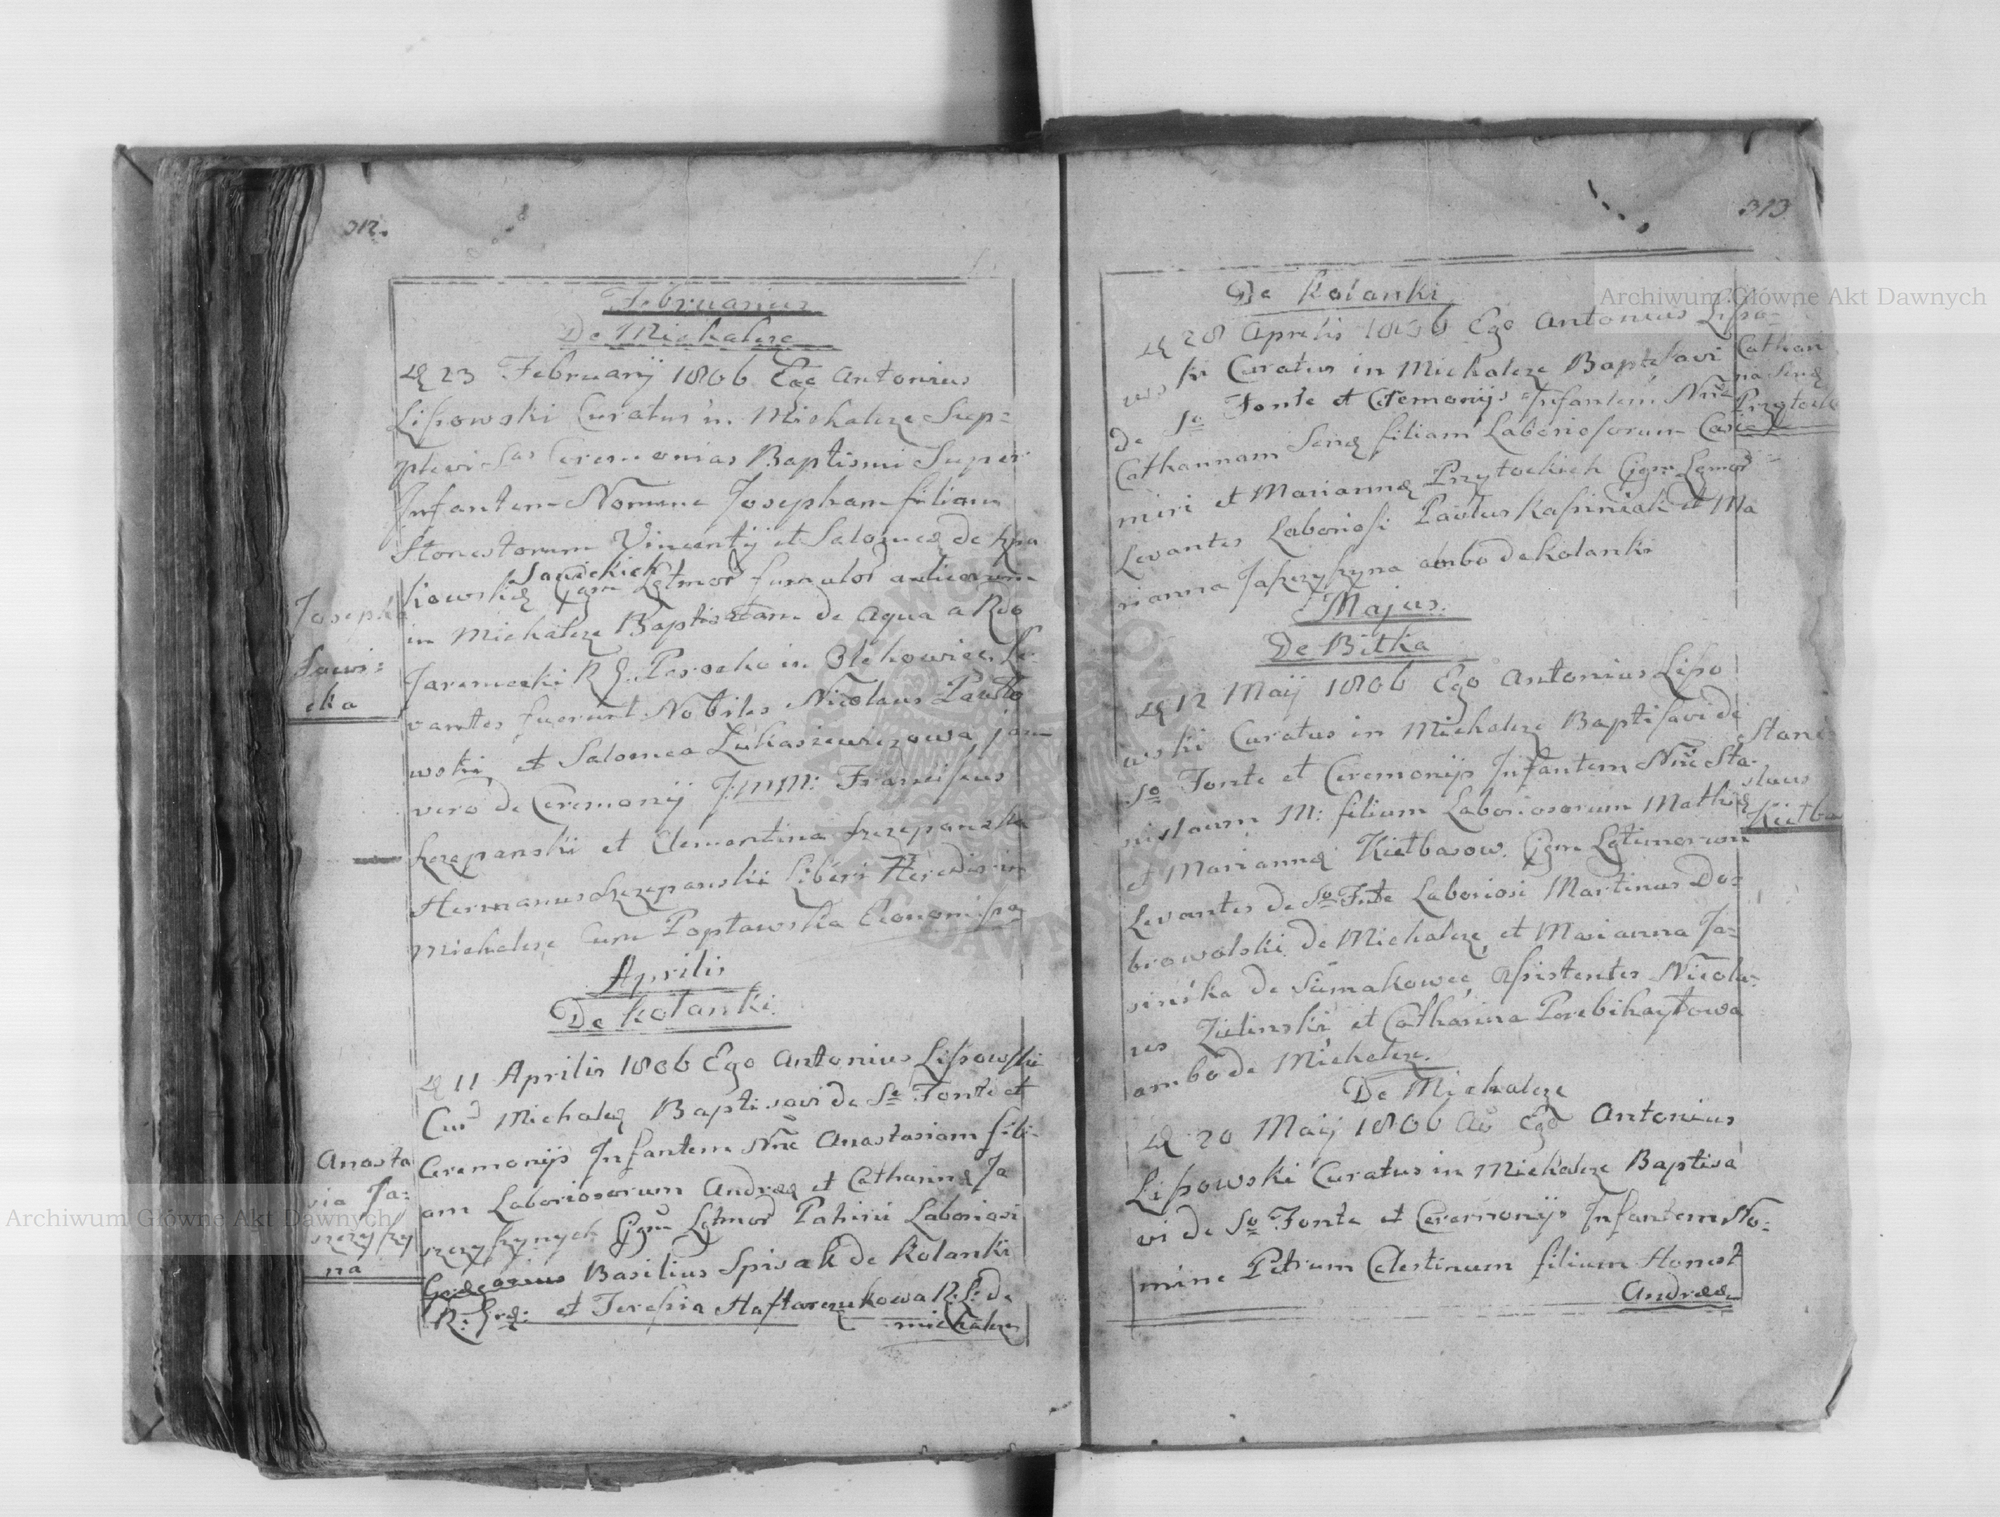 312.
Februarius
De Michalcze
D 23 Februarij 1806 Ego Antonius
Lissowski Curatus in Michalcze Sup=
plevi Sas Ceremonias Baptismi Super
Infantem Nomine Josepham filiam
Honestorum Vincentij et Salomeæ de
kowskie Sawickich Cgm Lgtmor famulor
in Michalcze Baptisatam de Aqua a Rdo
Jaremecki R. L. Parocho in Olchowiec Le
vantes fuerunt Nobiles Nicolaus Pawlo
wski et Salomea Lukasiewiczowa jam
vero de Ceremonij Franciscus
Szczepanski et Clementina Szczepanska
Hermanus Szczepanski Liberi Heredis in
Michalcze Cum Popławska Economissa
Joseph
Sawi=
cka
Aprilis
De Kolanki
D 11 Aprilis 1806 Ego Antonius Lissowski
Cur Michalcz Baptisavi de So Fonte et
Ceremonijs Infantem Nne Anastasiam fili=
am Laboriosorum Andreæ et Catharinæ Ja
szczyszynych Cgm Lgtmor Patrini Laboriosi
Basilius Spisak de Kolanki
et Teresia Haftarczukowa R: L: de
Michalcze
Anasta
sia Ja=
szczyszy
na
313
De Kolanki
D 28 Aprilis 1806 Ego Antonius Lisso=
wski Curatus in Michalcze Baptisavi
de So Fonte et Ceremonijs Infantem Nne
Cathannam Senæ filiam Laboriosorum Casi
miri et Mariannæ Przytockich Cgm Lgmor
Levantes Laboriosi Paulus Kassiniak et Ma
rianna Jaszczyszyna ambo de Kolanki
Cathan
na Senæ
Przytocka
Majus.
De Bitka
D 12 Maij 1806 Ego Antonius Lisso
wski Curatus in Michalcze Baptisavi de
So Fonte et Ceremonijs Infantem Nne Sta=
nislaum M: filium Laboriosorum Mathiæ
et Mariannæ Kiełbasow. Cgm Lgtimorum
Levantes de So Fnte Laboriosi Martinus Do=
browolski de Michalcze, et Marianna Ja=
sinska de Simakowce, Assistentes Nicola=
us Zielinski et Catharina Perebihaytowa
ambo de Michalcze.
Stani
slaus
Kiełba
De Michalcze
D 20 Maij 1806 Ao Ego Antonius
Lissowski Curatus in Michalcze Baptisa
vi de So Fonte et Ceremonijs Infantem No=
mine Petrum Celestinum filium Honest
Andreæ
Archiwum Główne Akt Dawnych
Archiwum Główne Akt Dawnych